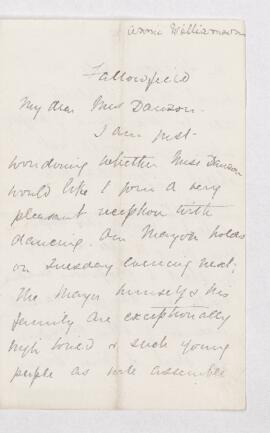 Annie Williamson
Fallowfield
My dear Miss Dawson.
I am just
wondering whether Miss Dawson
would like to join a very
pleasant reception with
dancing. Our Mayor holds
on Tuesday evening next;
The Mayor himself & his
family are exceptionally
high toned & such young
people as will assemble